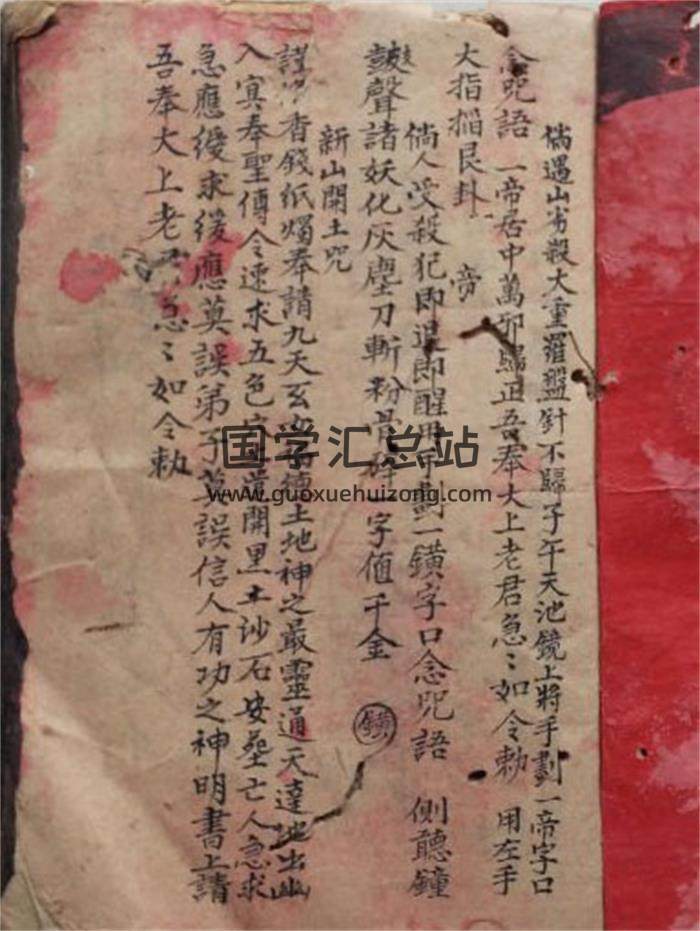 倘遇山劣殺大重羅盤針不歸子午天池鏡上將手劃一帝字口
念咒語 一帝居中萬邪歸正吾奉大上老君急〻如令勅 用左手
大指掐艮卦 帝
倘人受殺犯即退即醒用手劃一鐄字口念咒語 側聽鐘
鼓聲諸妖化灰塵刀斬粉骨碎一字值千金 鐄
新山開土咒
香錢紙燭奉請九天玄 土地神之最靈通天達地出幽
入冥奉聖傳令速求五色 開黑土沙石安墓亡人急求
急應緩求緩應莫誤弟子莫誤信人有功之神明書上請
吾奉大上老君急〻如令勅
国学汇总站
www.guoxuehuizong.com